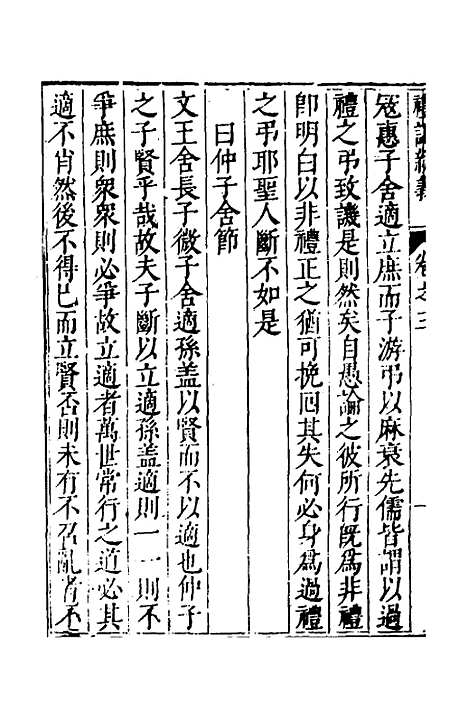 禮記纂義 卷之三
冦惠子舍適立庶而子游弔以麻衰先儒皆謂以過
禮之弔致譏是則然矣自愚論之彼所行旣爲非禮
卽明白以非禮正之猶可挽回其失何必身爲過禮
之弔耶聖人斷不如是
曰仲子舍節
文王舍長子微子舍適孫盖以賢而不以適也仲子
之子賢乎哉故夫子斷以立適孫盖適則一一則不
爭庶則衆衆則必爭故立適者萬世常行之道必其
適不肖然後不得已而立賢否則未有不召亂者不